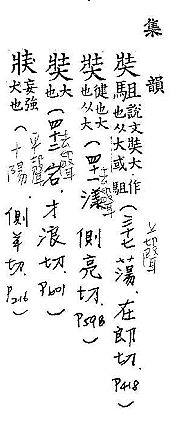 集韻
奘駔說文駔大也从大或作駔（三十七蕩．在郎切．P418）
上聲
奘健也从大也（四十一漾．側亮切．P598）
去聲
奘大也（四十二宕．才浪切．P601）
去聲
牀妄強犬也（十陽．側羊切．P216）
平聲